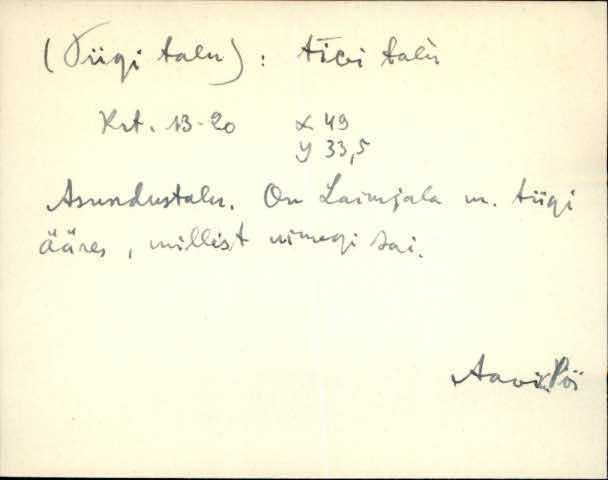 (Tiigi talu): tīɢi talù
Krt. 13-20 x 49
y 33,5
Asundustalu. On Laimjala m. tiigi
ääres, millist nimegi sai.